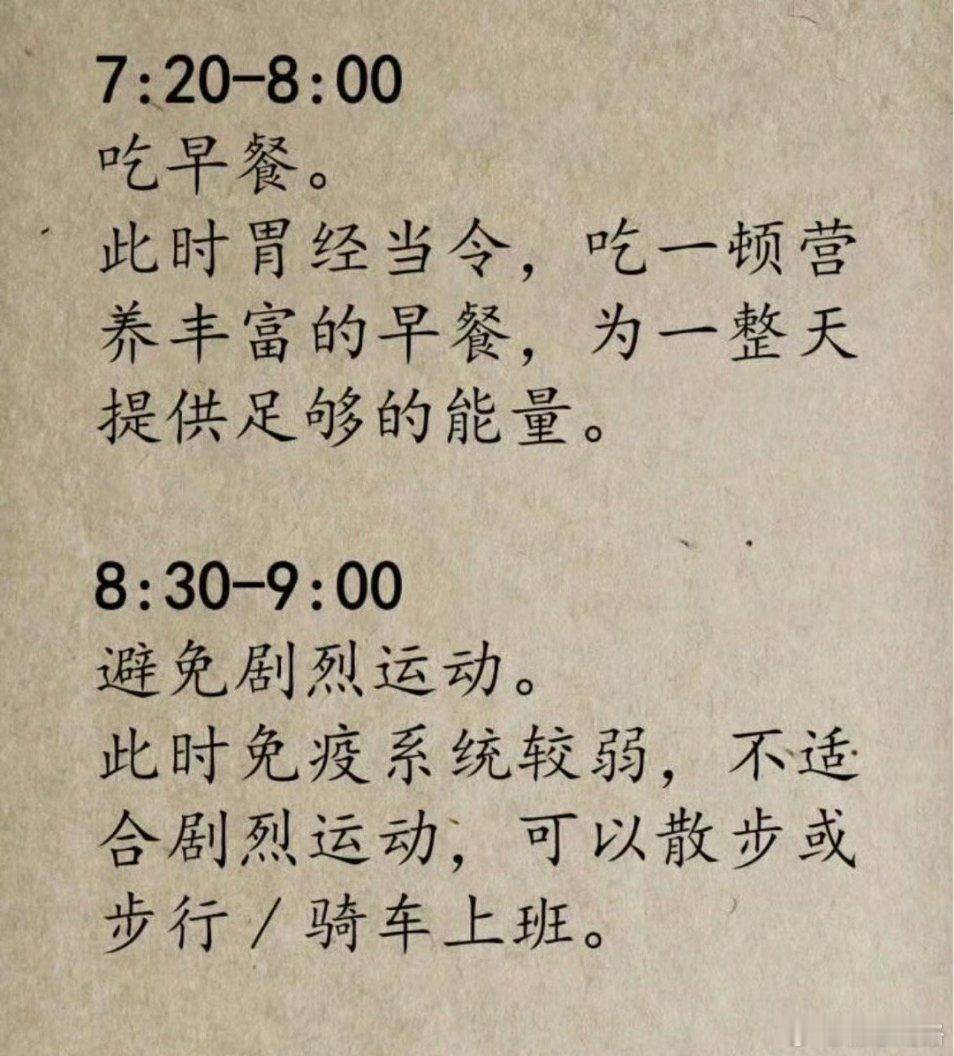 7:20-8:00
吃早餐。
此时胃经当令，吃一顿营
养丰富的早餐，为一整天
提供足够的能量。
8:30-9:00
避免剧烈运动。
此时免疫系统较弱，不适
合剧烈运动，可以散步或
步行/骑车上班。